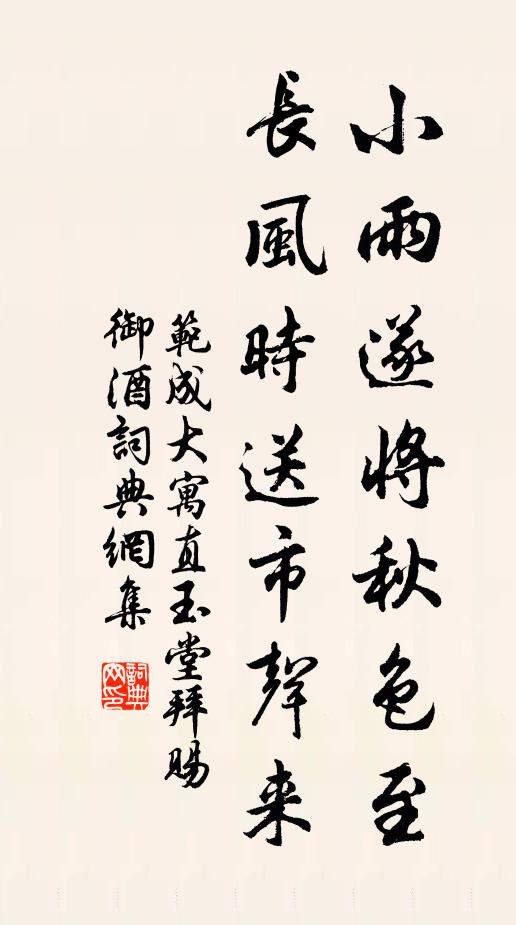 小雨遂將秋色至
長風時送市聲来
範成大寓直玉堂拜賜
御酒詞典網集
詞典
网印